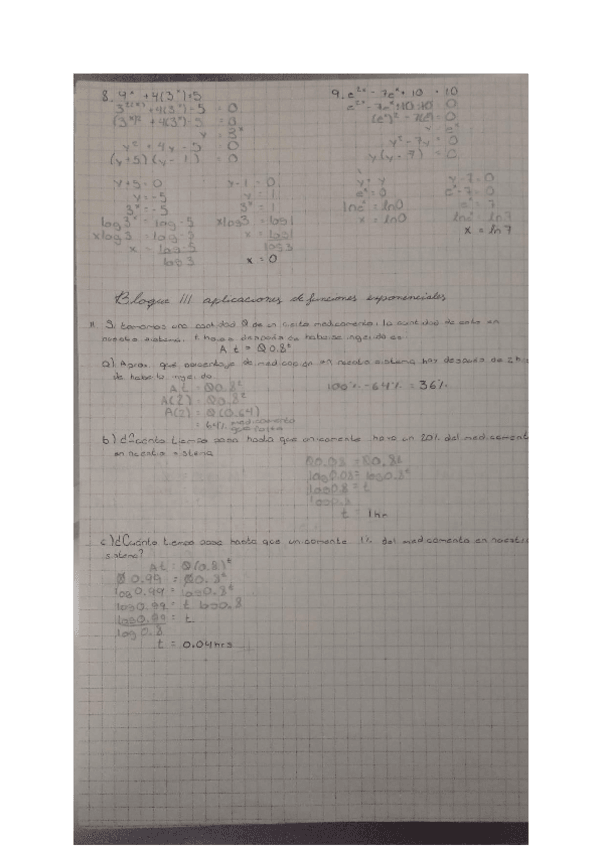 8. 9ˣ + 4(3ˣ) = 5
3²⁽ˣ⁾ + 4(3ˣ) - 5 = 0
(3ˣ)² + 4(3ˣ) - 5 = 0
y = 3ˣ
y² + 4y - 5 = 0
(y + 5)(y - 1) = 0
y + 5 = 0
y = -5
3ˣ = -5
log 3ˣ = log -5
x log 3 = log -5
x = log -5
log 3
y - 1 = 0
y = 1
3ˣ = 1
x log 3 = log 1
x = log 1
log 3
x = 0
9. e²ˣ - 7eˣ + 10 = 10
e²ˣ - 7eˣ + 10 - 10 = 0
(eˣ)² - 7(eˣ) = 0
y = eˣ
y² - 7y = 0
y(y - 7) = 0
eˣ = 0
ln eˣ = ln 0
x = ln 0
y - 7 = 0
eˣ - 7 = 0
eˣ = 7
ln eˣ = ln 7
x = ln 7
Bloque III aplicaciones de funciones exponenciales
Si tomamos una cantidad Q de un cierto medicamento, la cantidad de esto en
nuestro sistema t horas después de haberse ingerido es:
A t = Q 0.8ᵗ
a) Aprox. qué porcentaje de medicación en nuestro sistema hay después de 2 h
de haberlo ingerido
A t = Q 0.8ᵗ
A(2) = Q 0.8²
A(2) = Q (0.64)
= 64% medicamento
100% - 64% = 36%
b) ¿Cuánto tiempo pasa hasta que únicamente haya un 20% del medicament
en nuestro sistema
log 0.8 = t
log 0.8
t = 1hr
c) ¿Cuánto tiempo pasa hasta que unicamente 1% del medicamento en nuestro
sistema?
At = Q(0.8)ᵗ
Q 0.99 = Q 0.8ᵗ
log 0.99 = log 0.8ᵗ
log 0.99 = t log 0.8
log 0.99 = t
log 0.8
t = 0.04hrs